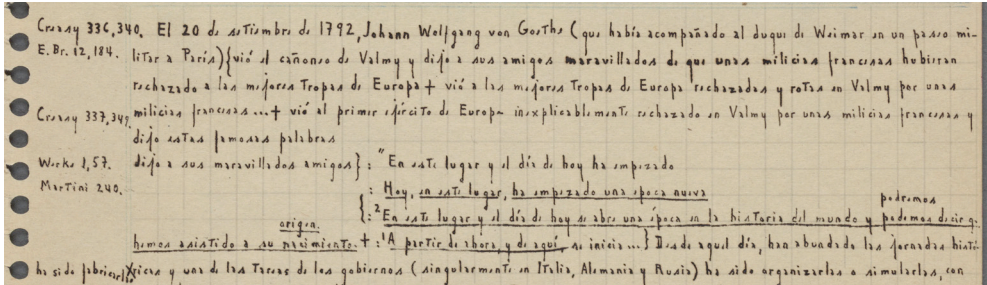 Creasy 336,340. El 20 de setiembre de 1792, Johann Wolfgang von Goethe (que había acompañado al duque de Weimar en un paseo mi-
E. Br. 12, 184. litar a París) {vió el cañoneo de Valmy y dijo a sus amigos maravillados de que unas milicias francesas hubieran
rechazado a las mejores tropas de Europa + vió a las mejores tropas de Europa rechazadas y rotas en Valmy por unas
Creasy 337,342 milicias francesas...+ vió al primer ejército de Europa inexplicablemente rechazado en Valmy por unas milicias francesas y
dijo estas famosas palabras
Works 1,57. dijo a sus maravillados amigos}: "En este lugar y el día de hoy ha empezado
Martini 240. : Hoy, en este lugar, ha empezado una época nueva
podremos
{:² En este lugar y el día de hoy se abre una época en la historia del mundo y podemos decir q.
origen.
hemos asistido a su nacimiento. + :¹ A partir de ahora, y de aquí, se inicia...} Desde aquel día, han abundado las jornadas histó-
ha sido fabricar ricas y una de las tareas de los gobiernos (singularmente en Italia, Alemania y Rusia) ha sido organizarlas o simularlas, con